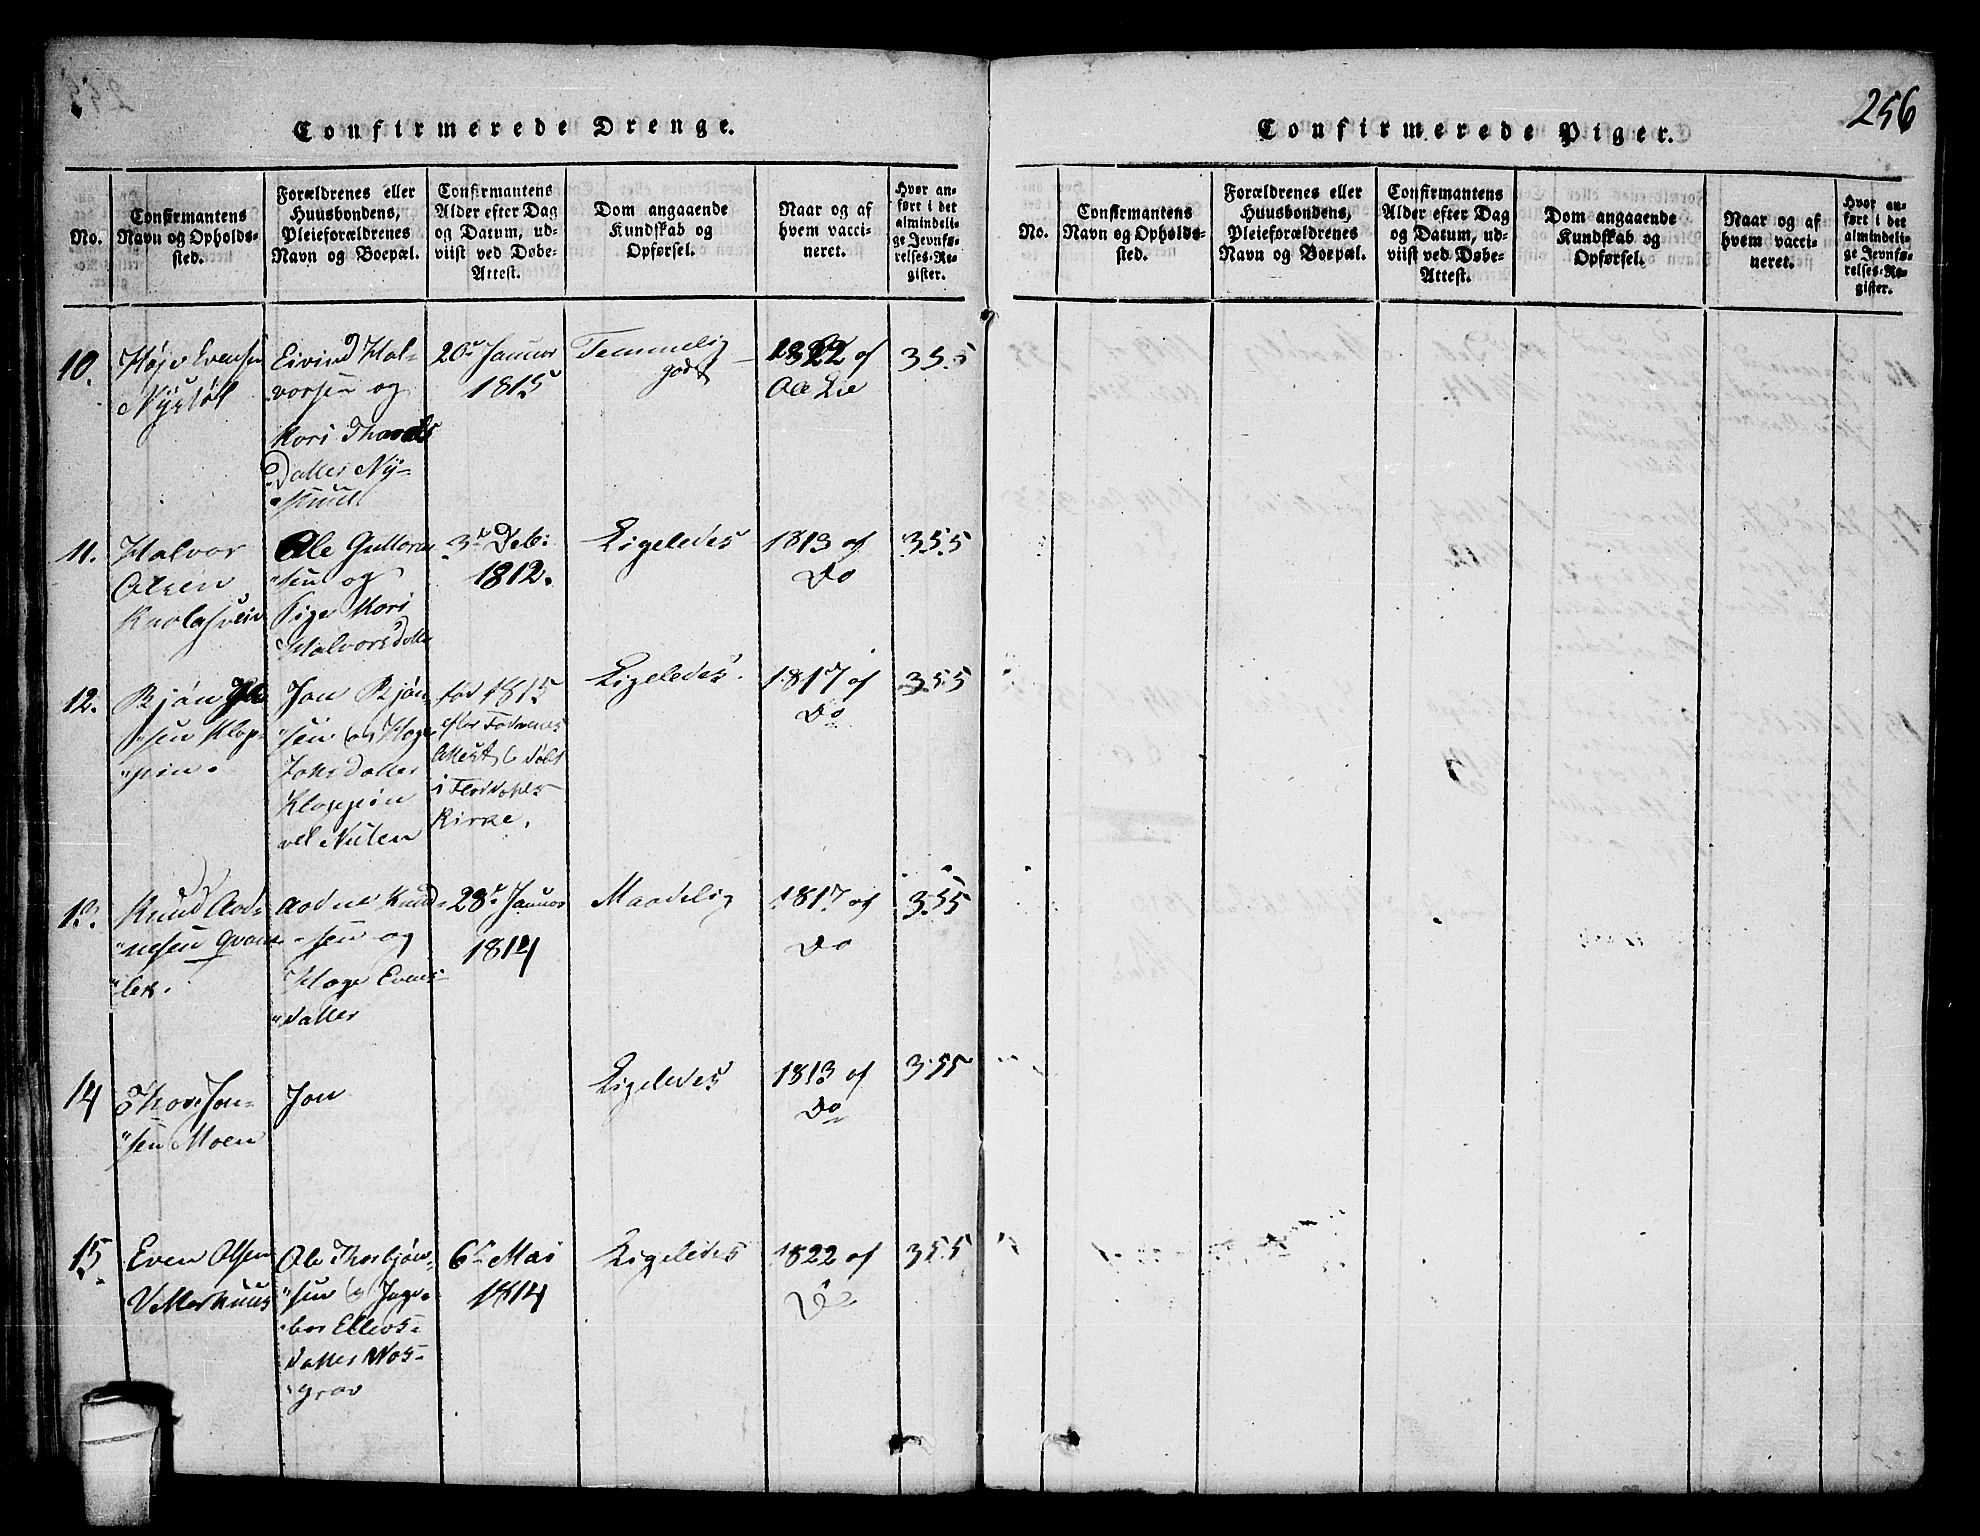 256
Confirmerede Drenge.
No.
Confirmantens
Navn og Opholds-
sted.
Forældrenes eller
Huusbondens,
Pleieforældrenes
Navn og Boepæl.
Confirmantens
Alder efter Dag
og Datum, ud-
viist ved Døbe-
Attest.
Dom angaaende
Kundskab og
Opførsel.
Naar og af
hvem vacci-
neret.
Hvor an-
ført i det
almindeli-
ge Jevnfø-
relses-Re-
gister.
10.
Evensen
Nystøl
Eivind Hal-
vorsen og
Kori
Datter Ny-
20de Januar
1815
Temmelig
godt
1822 af
Ole Lie
355
11.
Halvor
Olsen
Ole
sen og
Pige Kori
Halvorsdatter
3de Deb:
1812.
Ligeledes
1813 af
Do
355
12.
Bjøn
sen Klop-
pen.
Jon Bjøn-
sen og Hoge
datter
vel Nuten
fød 1815
efter
Attest
i
Kirke.
Ligeledes.
1817 af
Do
355
13.
Knud Aad-
nesen Qvam-
bek.
Aadne Knud-
sen og
Hoge Evens-
datter
28de Januar
1814
Maadelig
1817 af
Do
355
14
Thor Jon-
sen Moen
Jon
Ligeledes
1813 af
Do
355
15.
Even Olsen
Vetterhuus
Ole Thorbjøn-
sen og Inge-
bor
datter
grav
6te Mai
1814
Ligeledes
1822 af
Do
355
Confirmerede Piger.
No.
Confirmantens
Navn og Opholds-
sted.
Forældrenes eller
Huusbondens,
Pleieforældrenes
Navn og Boepæl.
Confirmantens
Alder efter Dag
og Datum, ud-
viist ved Døbe-
Attest.
Dom angaaende
Kundskab og
Opførsel.
Naar og af
hvem vacci-
neret.
Hvor an-
ført i det
almindeli-
ge Jevnfø-
relses-Re-
gister.